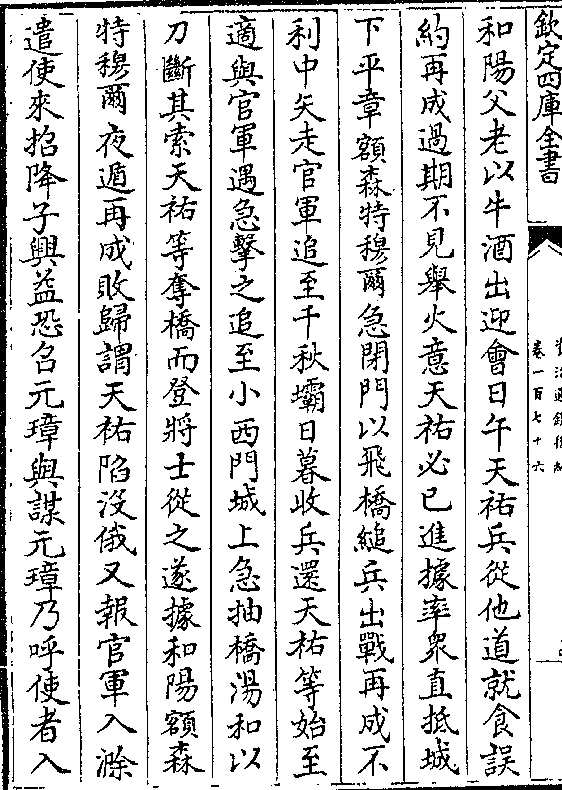 欽定四庫全書
資治通鑑後編
卷一百七十六
和陽父老以牛酒出迎會日午天祐兵從他道就食誤
約再成過期不見舉火意天祐必已進據率衆直抵城
下平章額森特穆爾急閉門以飛橋縋兵出戰再成不
利中矢走官軍追至千秋壩日暮收兵還天祐等始至
適與官軍遇急擊之追至小西門城上急抽橋湯和以
刀斷其索天祐等奪橋而登將士從之遂據和陽額森
特穆爾夜遁再成敗歸謂天祐陷沒俄又報官軍入滁
遣使來招降子興益恐召元璋與謀元璋乃呼使者入